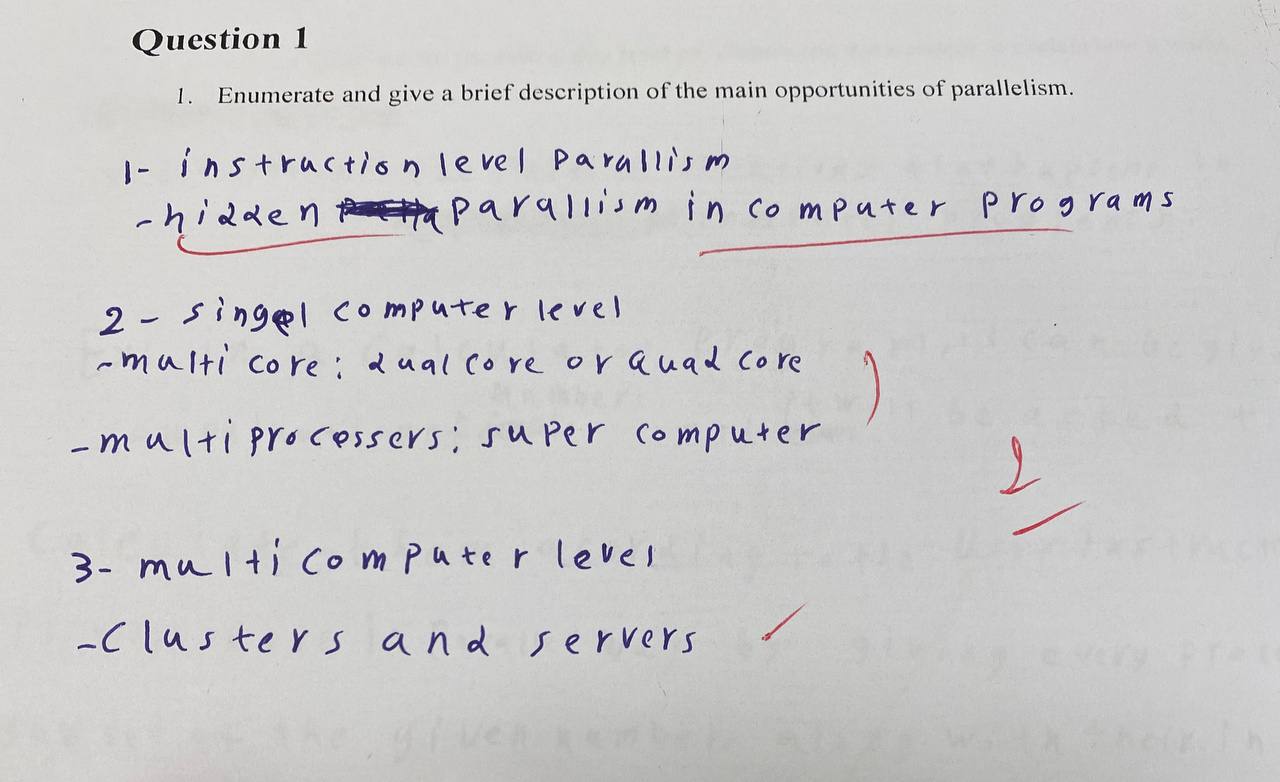 Question 1
1. Enumerate and give a brief description of the main opportunities of parallelism.
1- instruction level Parallism
- hidden parallism in computer programs
2 - singel computer level
- multi core: dual core or quad core
- multi processers: super computer
2
3- multi computer level
- Clusters and servers